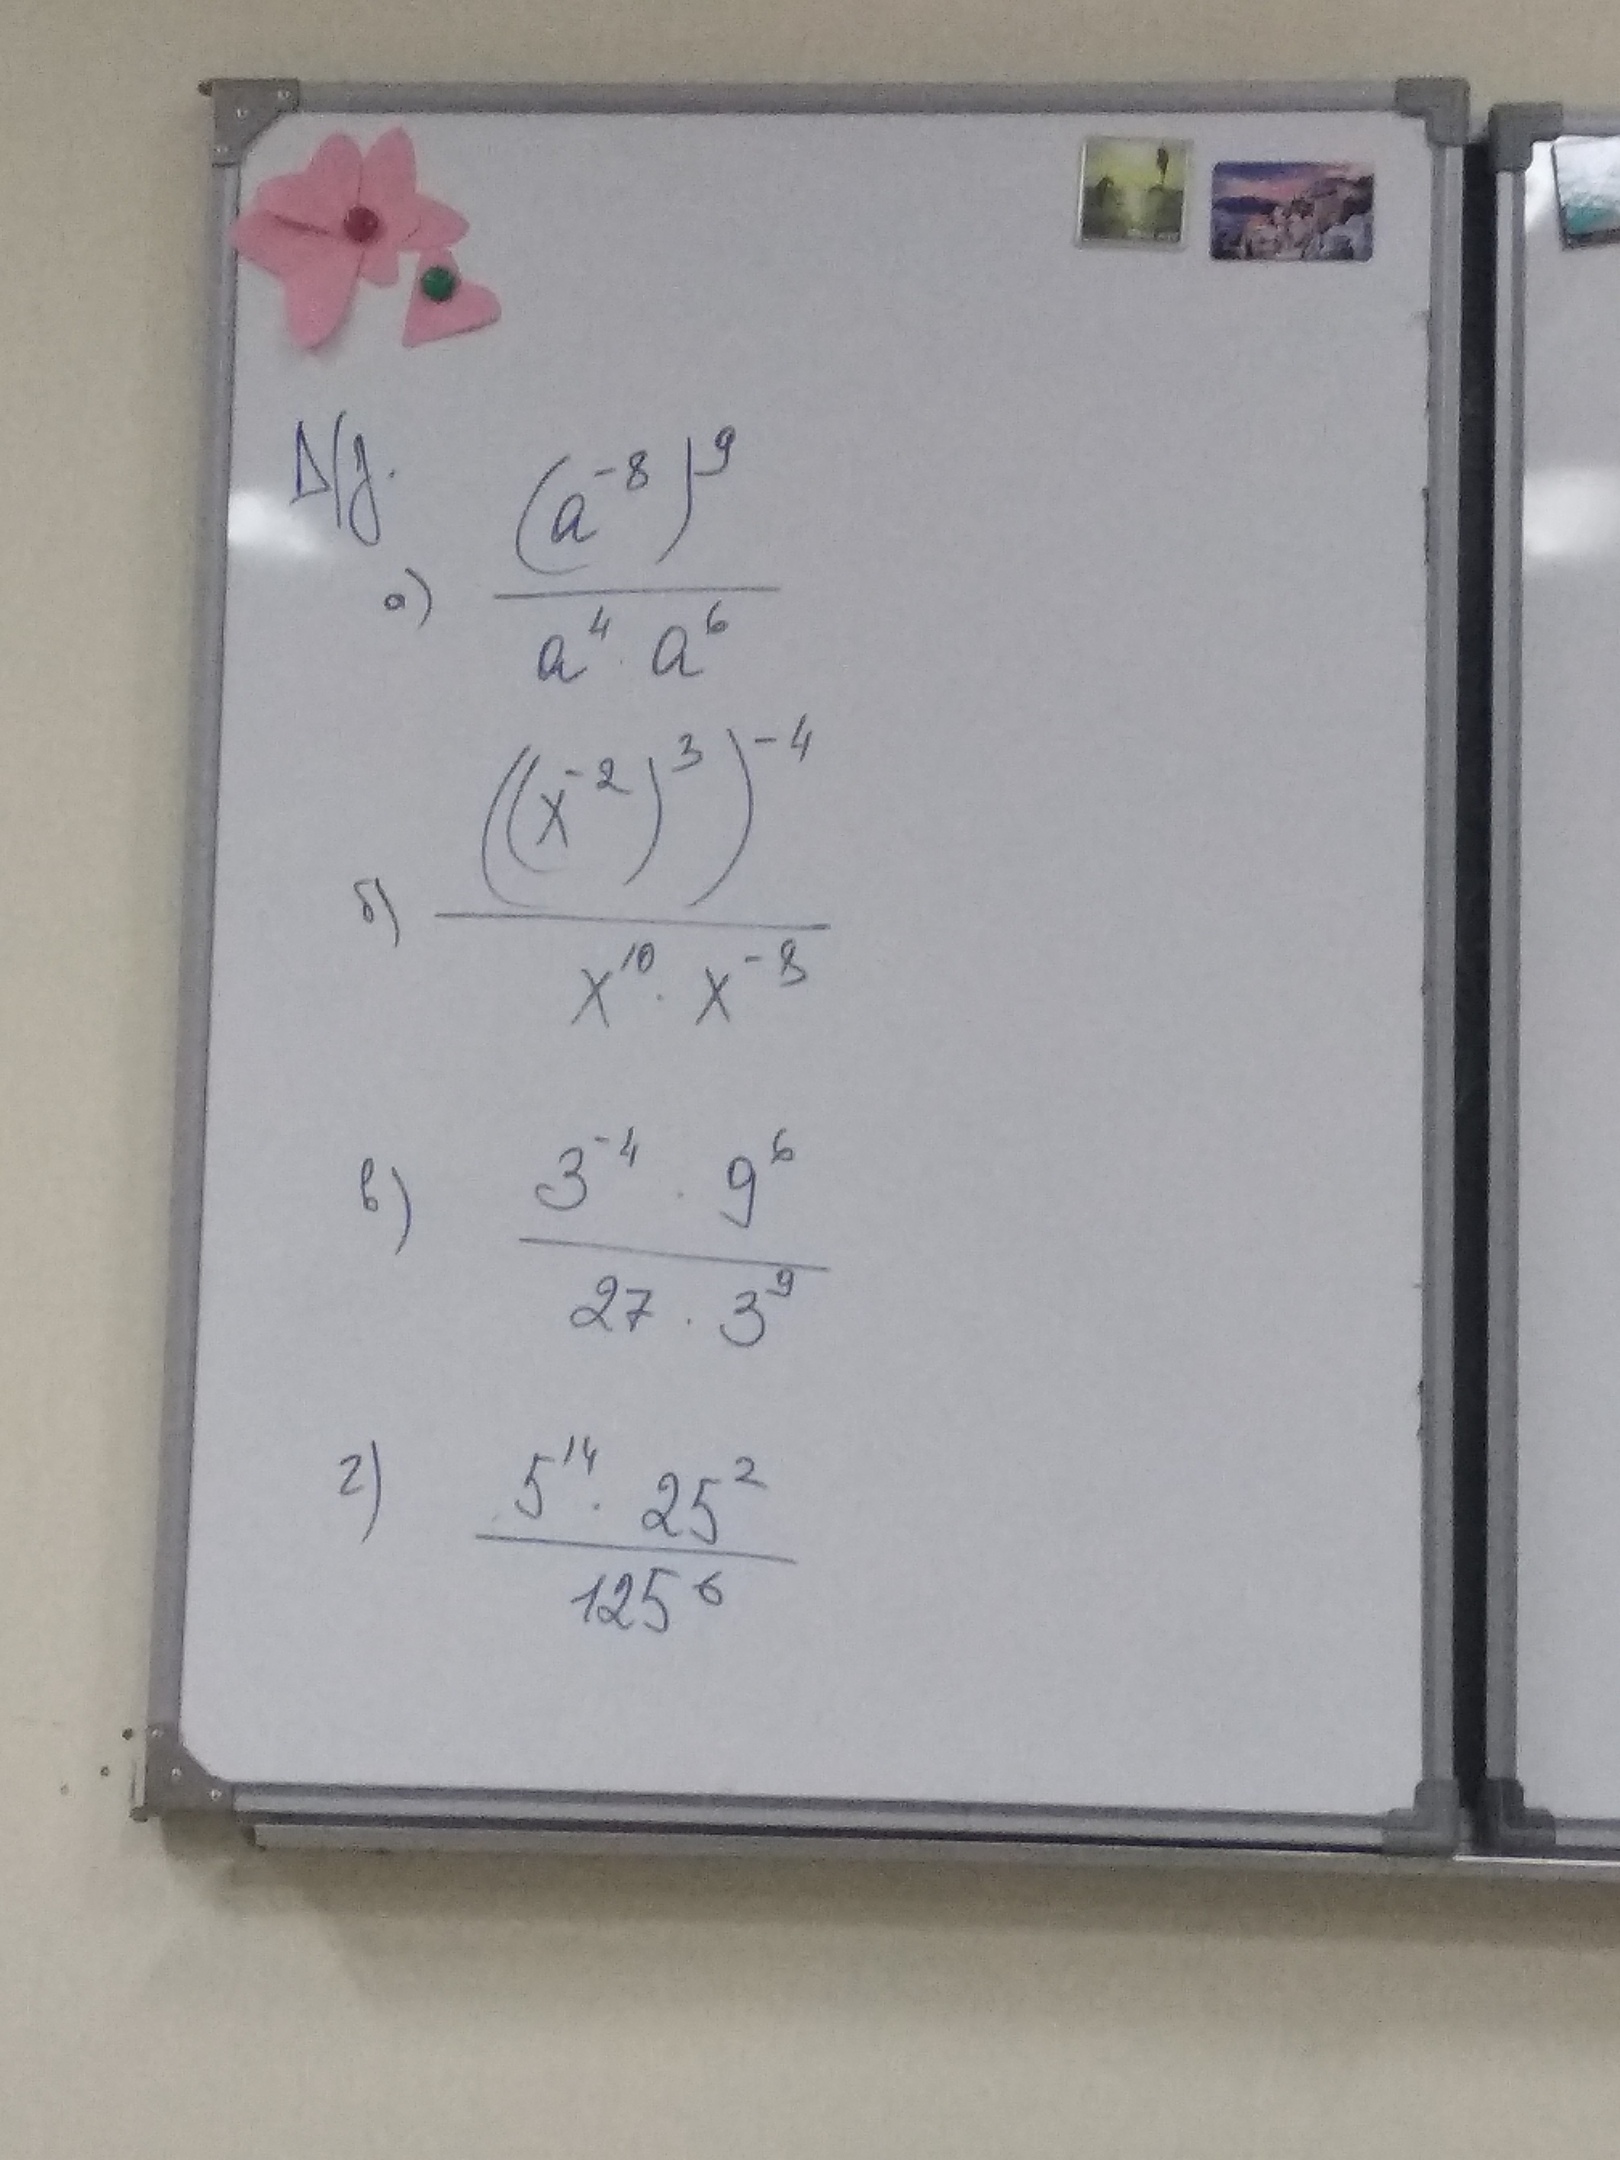 Д/з.
а) (a⁻⁸)⁹
a⁴ · a⁶
б) ((x⁻²)³)⁻⁴
x¹⁰ · x⁻⁸
в) 3⁻⁴ · 9⁶
27 · 3⁹
г) 5¹⁴ · 25²
125⁶